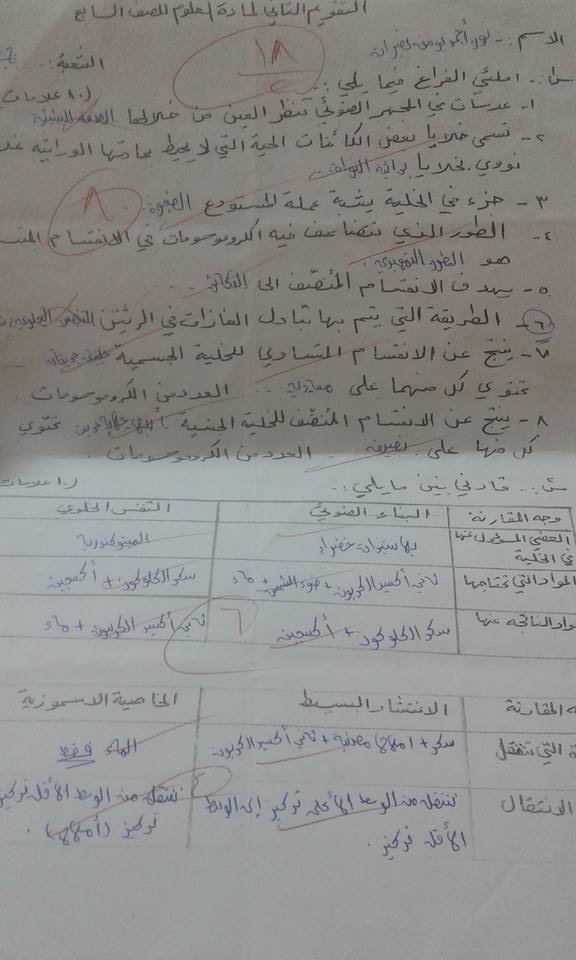 التقويم الثاني لمادة العلوم للصف السابع
الاسم :- نور أحمد يوسف الشعبة :..
١٨
س١:. املئي الفراغ فيما يلي :. (١٠ علامات
١- عدسات في المجهر الضوئي تنظر العين من خلالها العدسة العينية
٢- تسمى خلايا بعض الكائنات الحية التي لا يحيط بمادتها الوراثية
نووي بخلايا بدائية النواة.
٣- جزء في الخلية يشبه عمله المستودع الفجوة.
٨
٤- الطور الذي تتضاعف فيه الكروموسومات في الانقسام
هو الطور التمهيدي.
٥- يهدف الانقسام المُنصّف الى التكاثر.
٦- الطريقة التي يتم بها تبادل الغازات في الرئتين التنفس الخلوي
٧- ينتج عن الانقسام المتساوي للخلية الجسمية خليتين
تحتوي كل منهما على مساوي .. العدد من الكروموسومات .
٨- ينتج عن الانقسام المُنصّف للخلية الجنسية أربع تحتوي
كل منها على .. نصف .. العدد من الكروموسومات .
س٢:. قارني بين ما يلي :. (١٠ علامات
وجه المقارنة البناء الضوئي التنفس الخلوي
العضي المسؤول عنها في الخلية بلاستيدات خضراء الميتوكندريا
المواد التي تحتاجها ثاني أكسيد الكربون + ضوء الشمس + ماء سكر الكلوكوز + أكسجين
المواد الناتجه عنها سكر الكلوكوز + أكسجين ثاني أكسيد الكربون + ماء
٦
المقارنة الانتشار البسيط الخاصية الاسموزية
التي تنتقل سكر + املاح معدنية + ثاني أكسيد الكربون الماء فقط
الانتقال تنتقل من الوسط الأعلى تركيز إلى الوسط تنتقل من الوسط الأقل تركيز
الأقل تركيز . تركيز (أملاح) .
٤